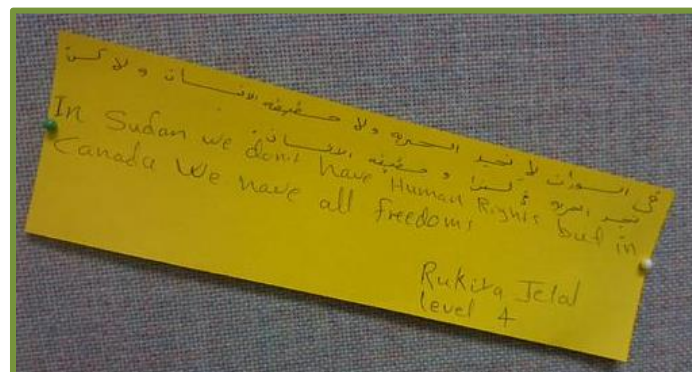 في السودان لا نجد الحريه ولا حقيقه الانسان ولاكن
نجد الحريه في كندا و حقيقه الانسان.
In Sudan we don't have Human Rights but in
Canada We have all freedoms
Rukiya Jelal
level 4